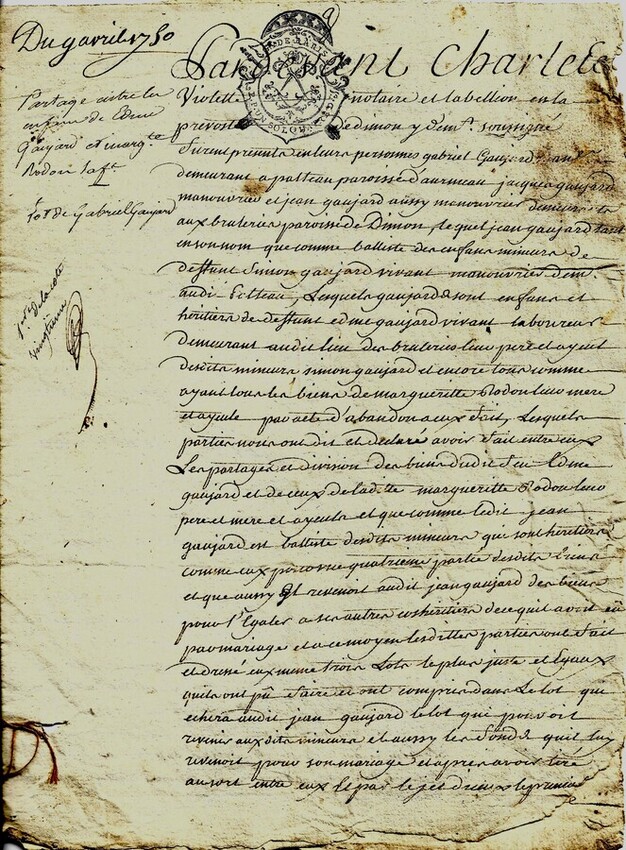 Du 9 avril 1750
Pardevant Charles
Partage entre les
enfans de Edme
Gaujard et marg.te
Rodon laf.e
1er Lot de Gabriel Gaujard
Violette notaire et tabellion en la
prevosté de Dimon y dem.t soussigné
furent presents en leurs personnes gabriel Gaujard
demeurant a palteau paroisse d'armeau, jacques gaujard
manouvrier et jean gaujard aussy manouvrier demeurants
aux bruleries paroisse de Dimon, lequel jean gaujard tant
en son nom que comme balliste des enfans mineurs de
deffunt Simon gaujard vivant manouvrier dem.
audit Lesquels gaujards sont enfans et
heritiers de deffunt edme gaujard vivant laboureur
demeurant audit lieu des bruleries leur pere et ayeul
desdits mineurs simon gaujard et encore tous comme
ayant tous les biens de margueritte Rodon leur mere
et ayeule par acte d'abandon a eux fait, Lesquels
parties nous ont dit et declaré avoir fait entre eux
Les partages et division des biens dudit feu Edme
gaujard et de ceux de ladite margueritte Rodon leur
pere et mere et ayeuls et que comme ledit jean
gaujard est balliste desdits mineurs qui sont heritiers
comme eux pour une quatrieme partie desdits biens
et que aussy Il revenoit audit jean gaujard des biens
pour l'Egaler a ses autres coheritiers de ce quil avoit eü
par mariage et a ce moyen lesdittes parties ont fait
et dressé eux meme trois Lots le plus juste et Egaux
quils ont pû faire et ont compris dans Le lot que
echera audit jean gaujard le lot que pouvoit
revenir auxdits mineurs et aussy les fonds quil luy
revenoit pour son mariage et apres avoir tiré
au sort entre eux le premier